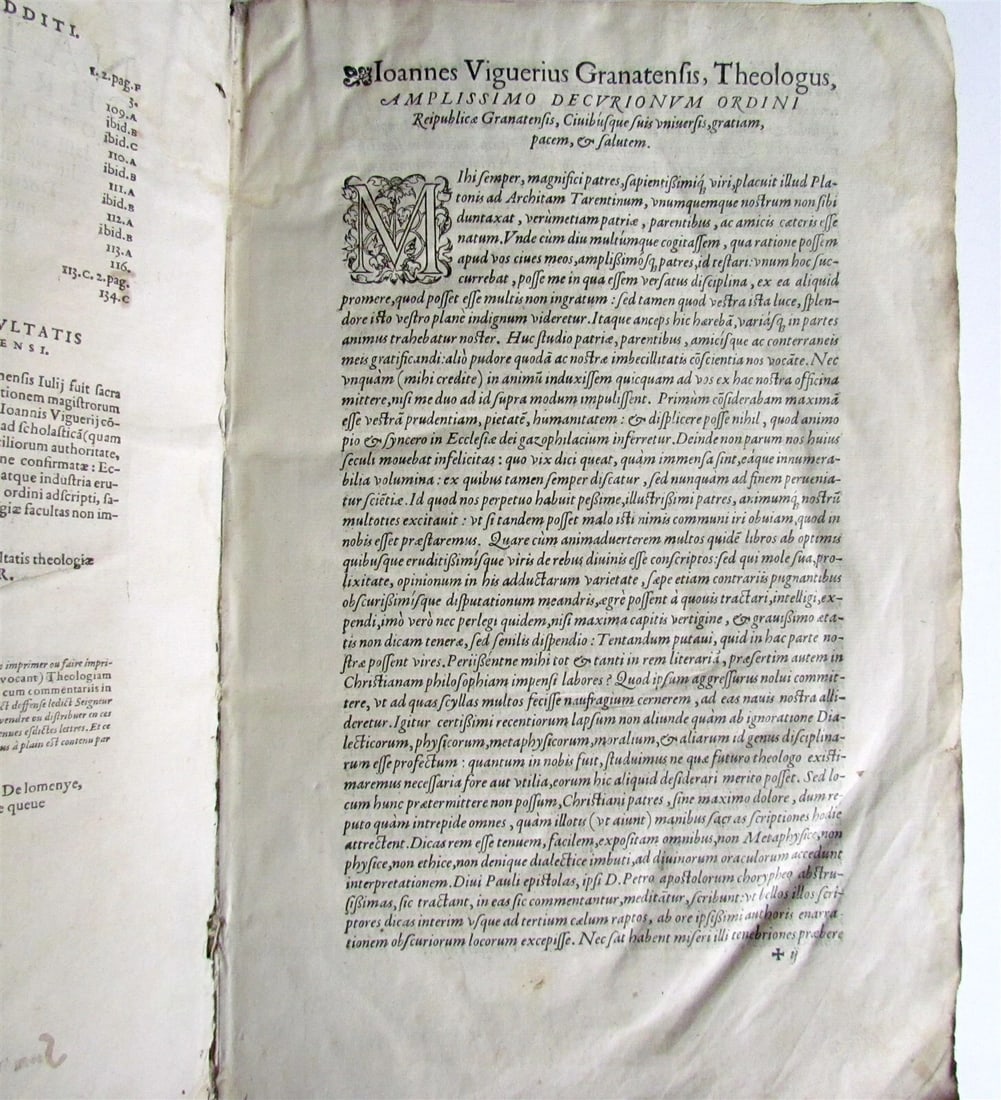 DDITI.
1. 2. pag. F
3.
109. A
ibid. B
ibid. C
110. A
ibid. B
111. A
ibid. B
112. A
ibid. B
113. A
116.
113. C. 2. pag.
134. C
VLTATIS
ENSI.
nensis Iulij fuit sacra
tionem magistrorum
Ioannis Viguerij cō-
ad scholasticā (quam
ciliorum authoritate,
ne confirmatæ : Ec-
atque industria eru-
ordini adscripti, sa-
giæ facultas non im-
ltatis theologiæ
R.
imprimer ou faire impri-
vocant) Theologiam
cum commentariis in
ct deffense ledict Seigneur
vendre ou distribuer en ces
enues esdictes lettres. Et ce
us à plain est contenu par
De lomenye,
e queue
Ioannes Viguerius Granatensis, Theologus,
AMPLISSIMO DECVRIONVM ORDINI
Reipublicæ Granatensis, Ciuibúsque suis vniuersis, gratiam,
pacem, & salutem.
MIhi semper, magnifici patres, sapientißimiq́; viri, placuit illud Pla-
tonis ad Architam Tarentinum, vnumquemque nostrum non sibi
duntaxat, verùmetiam patriæ, parentibus, ac amicis cæteris esse
natum. Vnde cùm diu multúmque cogitassem, qua ratione possem
apud vos ciues meos, amplißimósq; patres, id testari: vnum hoc suc-
currebat, posse me in qua essem versatus disciplina, ex ea aliquid
promere, quod posset esse multis non ingratum : sed tamen quod vestra ista luce, splen-
dore isto vestro planè indignum videretur. Itaque anceps hic hærebā, variásq; in partes
animus trahebatur noster. Huc studio patriæ, parentibus, amicísque ac conterraneis
meis gratificandi: aliò pudore quodā ac nostræ imbecillitatis cōscientia nos vocāte. Nec
vnquàm (mihi credite) in animū induxissem quicquam ad vos ex hac nostra officina
mittere, nisi me duo ad id supra modum impulissent. Primùm cōsiderabam maximā
esse vestrā prudentiam, pietatē, humanitatem : & displicere posse nihil, quod animo
pio & syncero in Ecclesiæ dei gazophilacium inferretur. Deinde non parum nos huius
seculi mouebat infelicitas : quo vix dici queat, quàm immensa sint, eáque innumera-
bilia volumina : ex quibus tamen semper discatur, sed nunquàm ad finem perueniā-
tur sciētiæ. Id quod nos perpetuo habuit peßime, illustrißimi patres, animumq́; nostrū
multoties excitauit : vt si tandem posset malo isti nimis communi iri obuiam, quod in
nobis esset præstaremus. Quare cùm animaduerterem multos quidē libros ab optimis
quibusque eruditißimísque viris de rebus diuinis esse conscriptos: sed qui mole sua, pro-
lixitate, opinionum in his adductarum varietate, sæpe etiam contrariis pugnantibus
obscurißimísque disputationum meandris, ægrè possent à quouis tractari, intelligi, ex-
pendi, imò verò nec perlegi quidem, nisi maxima capitis vertigine, & grauißimo æta-
tis non dicam teneræ, sed senilis dispendio : Tentandum putaui, quid in hac parte no-
stræ possent vires. Periißéntne mihi tot & tanti in rem literariā, præsertim autem in
Christianam philosophiam impensi labores? Quod ipsum aggressurus nolui commit-
tere, vt ad quas scyllas multos fecisse naufragium cernerem, ad eas nauis nostra alli-
deretur. Igitur certißimi recentiorum lapsum non aliunde quàm ab ignoratione Dia-
lecticorum, physicorum, metaphysicorum, moralium, & aliarum id genus disciplina-
rum esse profectum : quantum in nobis fuit, studuimus ne quæ futuro theologo existi-
maremus necessaria fore aut vtilia, eorum hic aliquid desiderari merito posset. Sed lo-
cum hunc prætermittere non possum, Christiani patres, sine maximo dolore, dum re-
puto quàm intrepide omnes, quàm illotis (vt aiunt) manibus sacras scriptiones hodie
attrectent. Dicas rem esse tenuem, facilem, expositam omnibus, non Metaphysice, non
physice, non ethice, non denique dialectice imbuti, ad diuinorum oraculorum accedunt
interpretationem. Diui Pauli epistolas, ipsi D. Petro apostolorum chorypheo abstru-
sißimas, sic tractant, in eas sic commentantur, meditātur, scribunt: vt bellos illos scri-
ptores, dicas interim vsque ad tertium cælum raptos, ab ore ipsißimi authoris enarra-
tionem obscuriorum locorum excepisse. Nec sat habent miseri illi tenebriones præbere
✠ ij